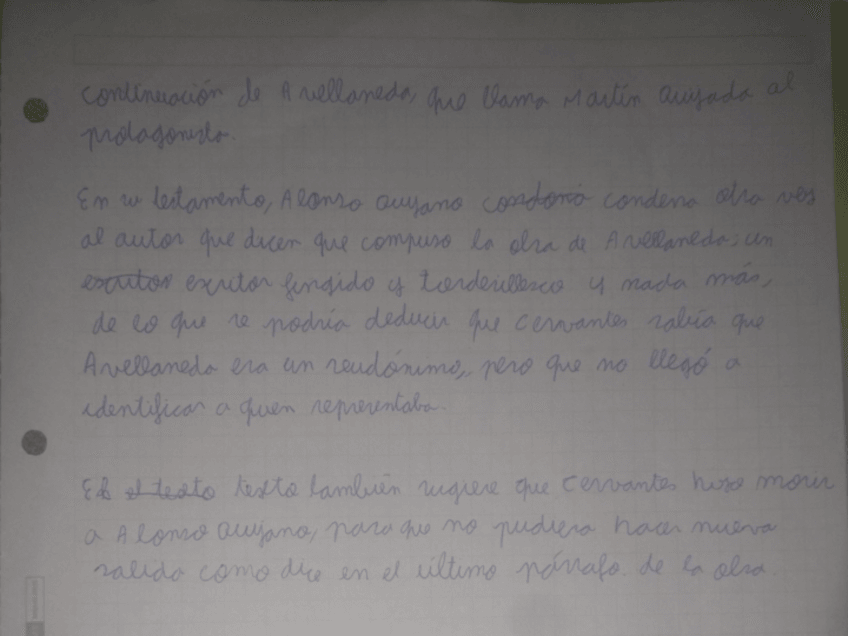 continuación de Avellaneda, que llama Martín Quijada al
protagonista.
En su testamento, Alonso Quijano condena otra vez
al autor que dicen que compuso la obra de Avellaneda; un
escritos escritor fingido y tordesillesco y nada más,
de lo que se podría deducir que Cervantes sabía que
Avellaneda era un seudónimo, pero que no llegó a
identificar a quien representaba.
El el texto texto también sugiere que Cervantes hizo morir
a Alonso Quijano, para que no pudiera hacer nueva
salida como dice en el último párrafo. de la obra.